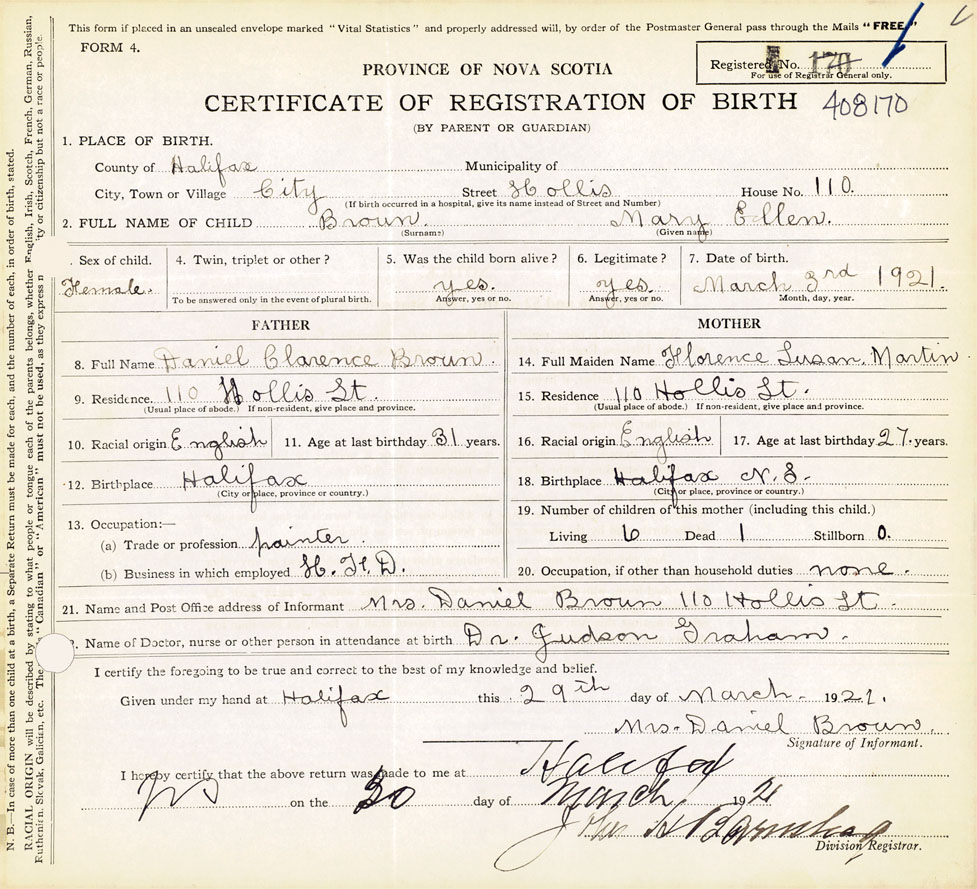 This form if placed in an unsealed envelope marked "Vital Statistics" and properly addressed will, by order of the Postmaster General pass through the Mails "FREE"
FORM 4.
Registered No. 170
For use of Registrar General only.
PROVINCE OF NOVA SCOTIA
CERTIFICATE OF REGISTRATION OF BIRTH 408170
(BY PARENT OR GUARDIAN)
1. PLACE OF BIRTH.
County of Halifax Municipality of
City, Town or Village City Street Hollis House No. 110.
(If birth occurred in a hospital, give its name instead of Street and Number)
2. FULL NAME OF CHILD Broun. Mary Ellen.
(Surname) (Given name)
. Sex of child. 4. Twin, triplet or other? 5. Was the child born alive? 6. Legitimate? 7. Date of birth.
Female. yes. yes. March 3rd 1921.
To be answered only in the event of plural birth. Answer, yes or no. Answer, yes or no. Month, day, year.
FATHER MOTHER
8. Full Name Daniel Clarence Broun. 14. Full Maiden Name Florence Susan. Martin.
9. Residence. 110 Hollis St. 15. Residence 110 Hollis St.
(Usual place of abode.) If non-resident, give place and province. (Usual place of abode.) If non-resident, give place and province.
10. Racial origin English 11. Age at last birthday 31 years. 16. Racial origin English 17. Age at last birthday 27. years.
12. Birthplace Halifax 18. Birthplace Halifax N.S.
(City or place, province or country.) (City or place, province or country.)
13. Occupation:— 19. Number of children of this mother (including this child.)
(a) Trade or profession painter. Living 6 Dead 1 Stillborn 0.
(b) Business in which employed H.F.D. 20. Occupation, if other than household duties none.
21. Name and Post Office address of Informant Mrs. Daniel Broun 110 Hollis St.
. Name of Doctor, nurse or other person in attendance at birth Dr. Judson Graham.
I certify the foregoing to be true and correct to the best of my knowledge and belief.
Given under my hand at Halifax this 29th day of March. 1921.
Mrs. Daniel Broun.
Signature of Informant.
I hereby certify that the above return was made to me at Halifax
on the 30 day of March 1921
John
Division Registrar.
N. B.—In case of more than one child at a birth, a Separate Return must be made for each, and the number of each, in order of birth, stated.
RACIAL ORIGIN will be described by stating to what people or tongue each of the parents belongs, whether English, Irish, Scotch, French, German, Russian,
Ruthenian, Slovak, Galician, etc. The "Canadian" or "American" must not be used, as they express n ty or citizenship but not a race or people.